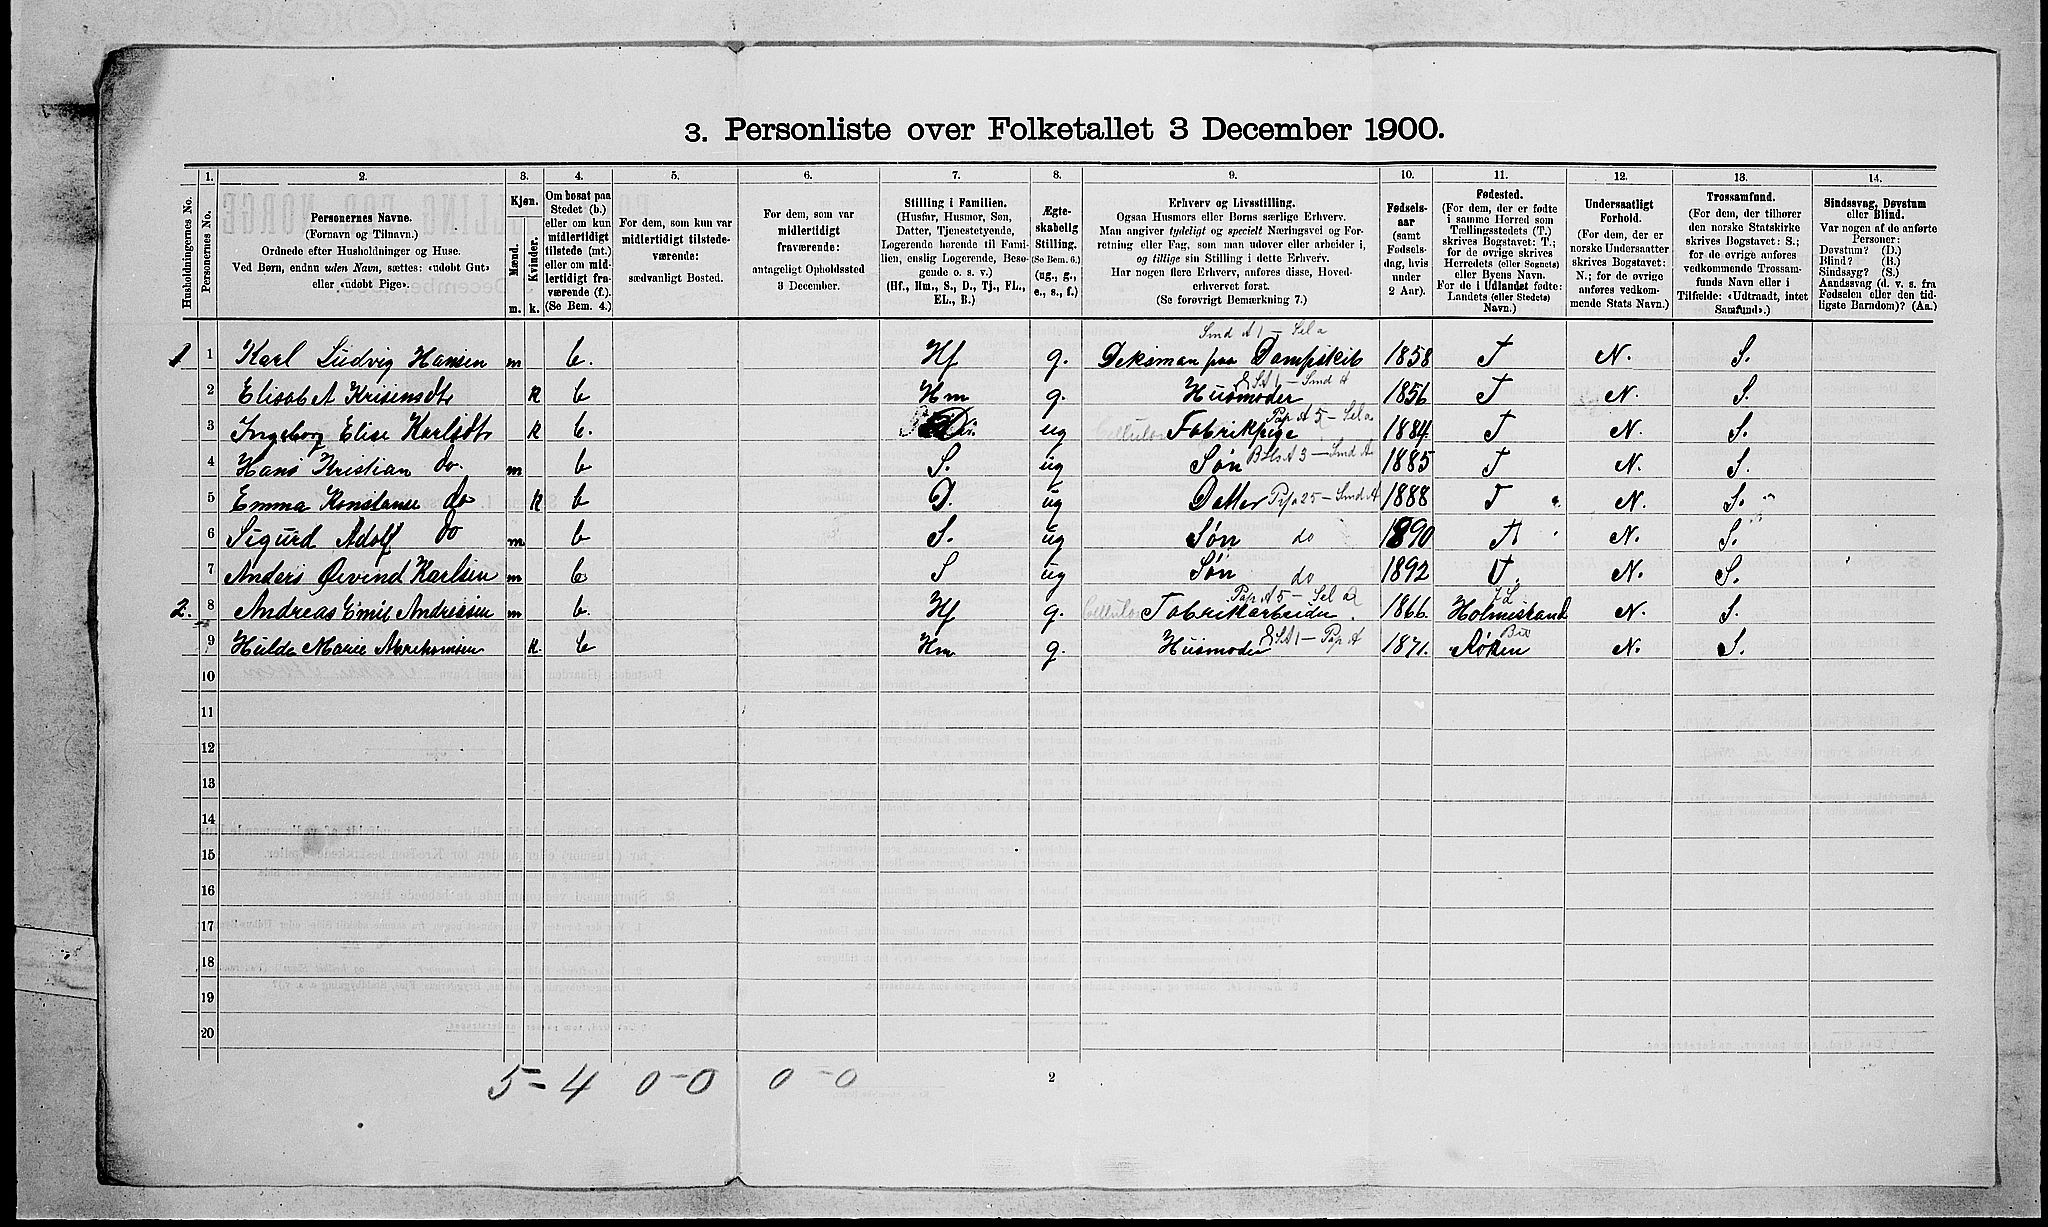 3. Personliste over Folketallet 3 December 1900.
Husholdningernes No.
1. Personernes No.
2. Personernes Navne.
(Fornavn og Tilnavn.)
Ordnede efter Husholdninger og Huse.
Ved Børn, endnu uden Navn, sættes: «udøbt Gut»
eller «udøbt Pige».
3. Kjøn.
Mænd. Kvinder.
m. k.
4. Om bosat paa
Stedet (b.)
eller om kun
midlertidigt
tilstede (mt.)
eller om mid-
lertidigt fra-
værende (f.).
(Se Bem. 4.)
5. For dem, som kun var
midlertidigt tilstede-
værende:
sædvanligt Bosted.
6. For dem, som var
midlertidigt
fraværende:
antageligt Opholdssted
3 December.
7. Stilling i Familien.
(Husfar, Husmor, Søn,
Datter, Tjenestetyende,
Logerende hørende til Fami-
lien, enslig Logerende, Besø-
gende o. s. v.)
(Hf., Hm., S., D., Tj., FL.,
EL., B.)
8. Ægte-
skabelig
Stilling.
(Se Bem. 6.)
(ug., g.,
e., s., f.)
9. Erhverv og Livsstilling.
Ogsaa Husmors eller Børns særlige Erhverv.
Man angiver tydeligt og specielt Næringsvei og For-
retning eller Fag, som man udøver eller arbeider i,
og tillige sin Stilling i dette Erhverv.
Har nogen flere Erhverv, anføres disse, Hoved-
erhvervet først.
(Se forøvrigt Bemærkning 7.)
10. Fødsels-
aar
(samt
Fødsels-
dag, hvis
under
2 Aar).
11. Fødested.
(For dem, der er fødte
i samme Herred som
Tællingsstedets (T.)
skrives Bogstavet: T.;
for de øvrige skrives
Herredets (eller Sognets)
eller Byens Navn.
For de i Udlandet fødte:
Landets (eller Stedets)
Navn.)
12. Undersaatligt
Forhold.
(For dem, der er
norske Undersaatter
skrives Bogstavet:
N.; for de øvrige
anføres vedkom-
mende Stats Navn.)
13. Trossamfund.
(For dem, der tilhører
den norske Statskirke
skrives Bogstavet: S.;
for de øvrige anføres
vedkommende Trossam-
funds Navn eller i
Tilfælde: «Udtraadt, intet
Samfund».)
14. Sindssvag, Døvstum
eller Blind.
Var nogen af de anførte
Personer:
Døvstum? (D.)
Blind? (B.)
Sindssyg? (S.)
Aandssvag (d. v. s. fra
Fødselen eller den tid-
ligste Barndom)? (Aa.)
Smd A 1 – Sela
1 1 Karl Ludvig Hansen m b. Hf g. Deksman paa Dampskib 1858 T N. S.
2 Elisabet k b Hm g. Husmoder 1856 T N. S.
3 Ingeborg Elise Karlsdt k b. D. ug Fabrikpige 1884 T N. S.
4 Hans Kristian do. m b S. ug Søn 1885 T N. S.
5 Emma Konstanse do k b D. ug Datter 1888 T N. S.
6 Sigurd Adolf do m b S. ug Søn do 1890 T N. S.
7 Anders Øivind Karlsen m b S ug Søn do 1892 T. N. S.
2. 8 Andreas Emil Andresen m b. Hf g. Cellulos Fabrikarbeider. 1866. Holmestrand N. S.
9 Hulda Marie k. b Hm g. Husmoder 1871. Røken N. S.
10
11
12
13
14
15
16
17
18
19
20
5 – 4 0 – 0 0 – 0
2